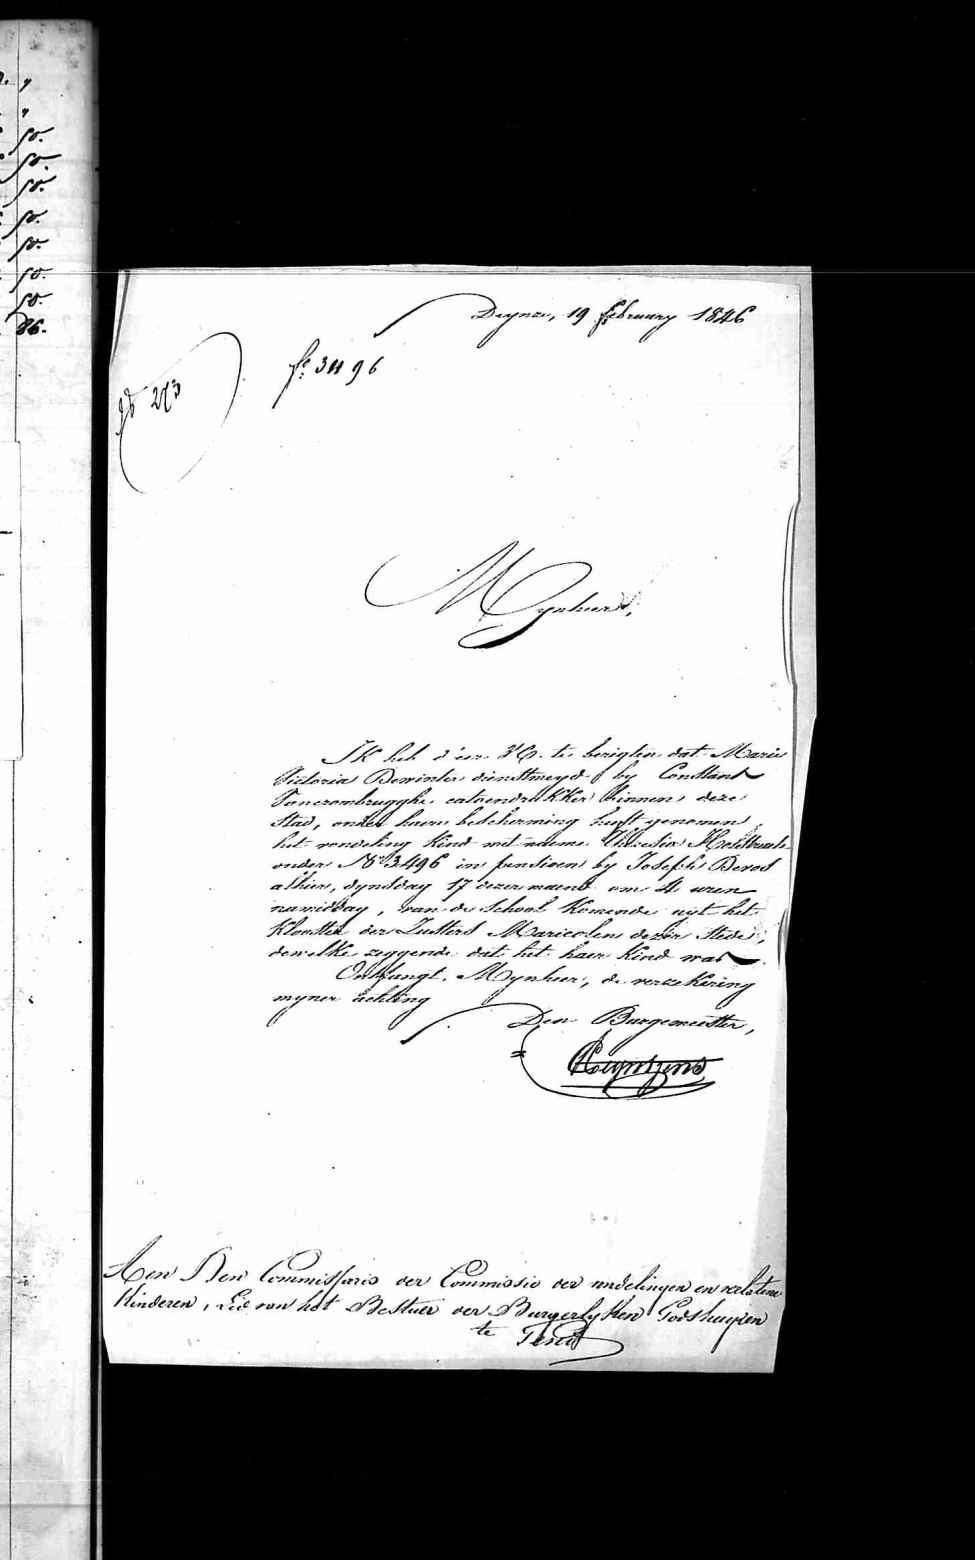 Deynze, 19 february 1846
f° 3496
Mynheer,
Ik heb d'eer U Ed. te berigten dat Marie
Victoria Dewinter dienstmeyd by Constant
Vancrombrugghe catoendrukker binnen deze
Stad, onder haere bescherming heeft genomen
het vondeling kind met naeme Theresia
onder N° 3496 in pensioen by Joseph Devos
alhier, dynsdag 17 dezer maend om 4 uren
namiddag, van de School komende uyt het
Klooster der Zusters Maricolen dezer Stede,
dewelke zeggende dat het haer kind was.
Ontfangt, Mynheer, de verzekering
myner achting
Den Burgemeester,
Aen Den Commissaris der Commissie der vondelingen en verlatene
kinderen, Lid van het Bestuer der Burgerlyken Godshuyzen
te Gend